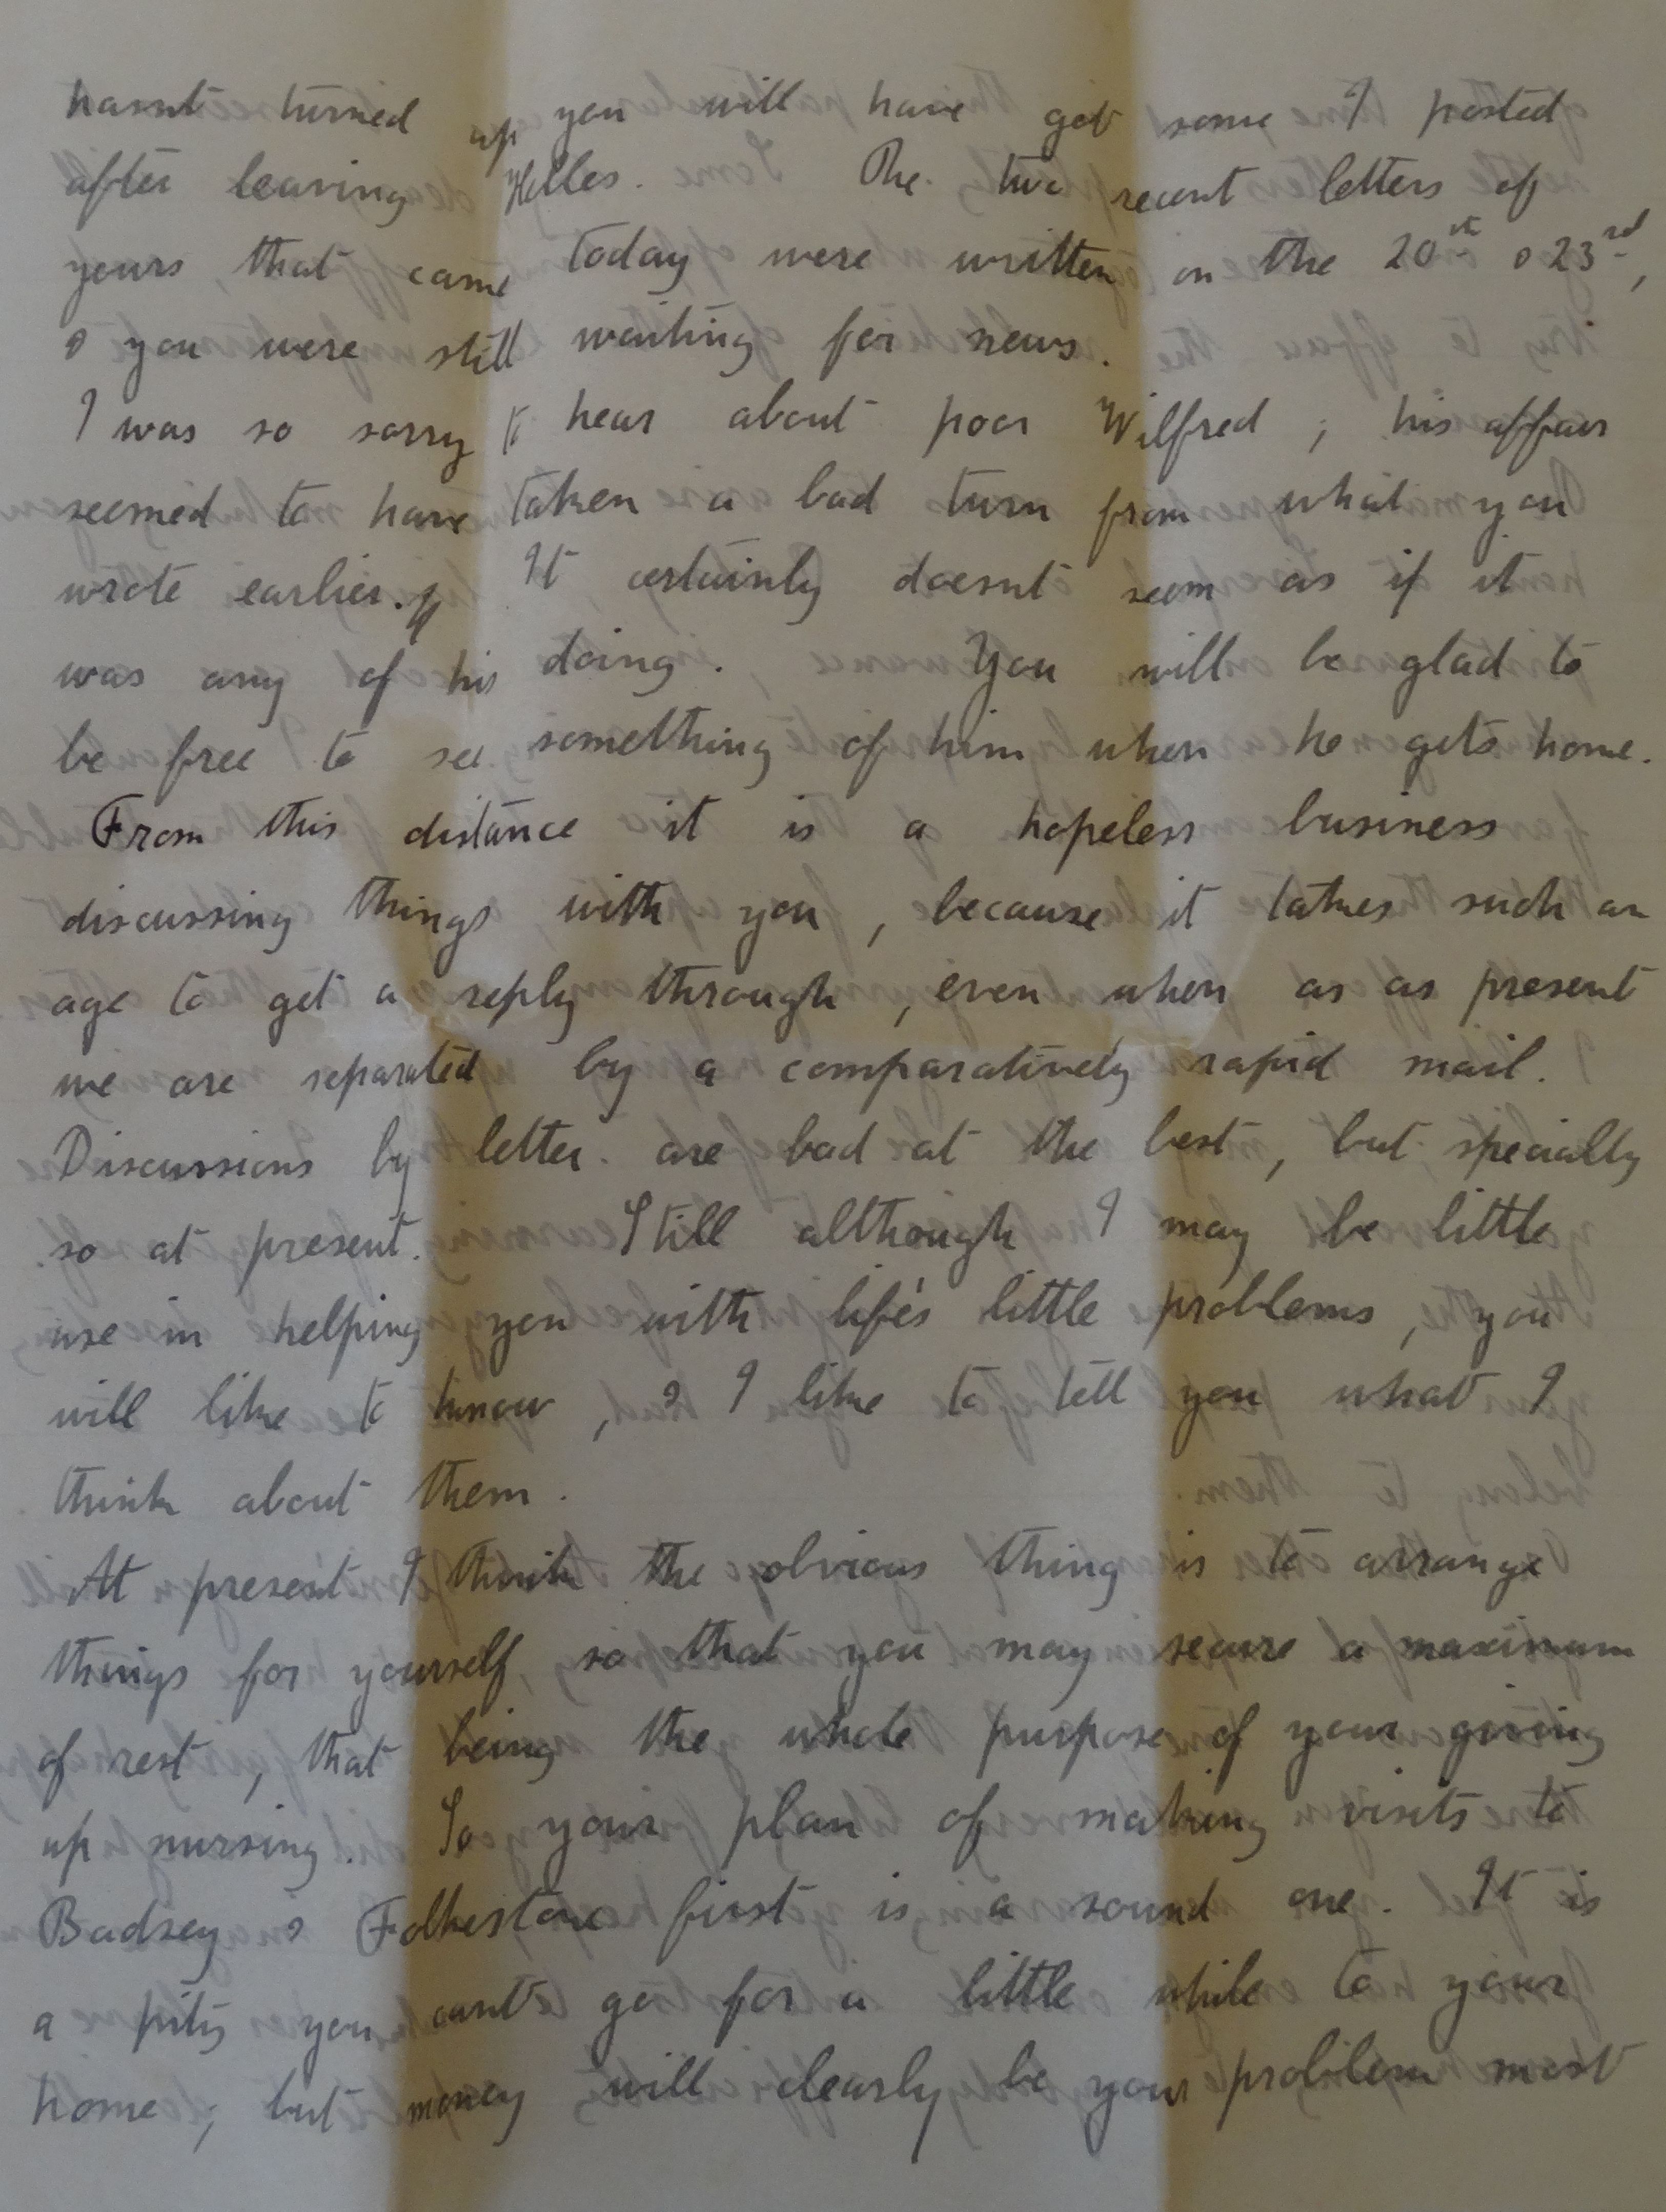 hasnt turned up you will have got some I posted
after leaving Helles. The two recent letters of
yours, that came today were written on the 20th & 23rd,
& you were still waiting for news.
I was so sorry to hear about poor Wilfred ; his affair
seemed to have taken a bad turn from what you
wrote earlier. It certainly doesnt seem as if it
was any of his doing. You will be glad to
be free to see something of him when he gets home.
From this distance it is a hopeless business
discussing things with you, because it takes such an
age to get a reply through, even when as as present
we are separated by a comparatively rapid mail.
Discussions by letter are bad at the best, but specially
so at present. Still although I may be little
use in helping you with life's little problems, you
will like to know, & I like to tell you what I
think about them.
At present I think the obvious thing is to arrange
things for yourself, so that you may secure a maximum
of rest, that being the whole purpose of your giving
up nursing. So your plan of making visits to
Badsey & Folkestone first is a sound one. It is
a pity you cant go for a little while to your
home; but money will clearly be your problem most